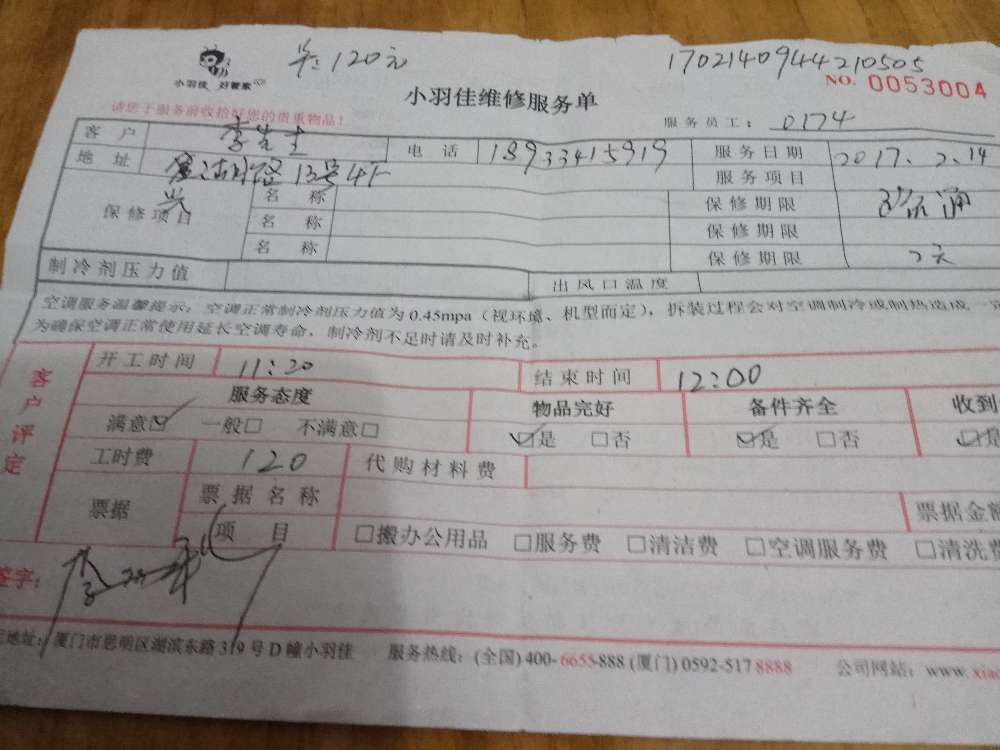 小羽佳 好管家
120元
1702140944210505
NO. 0053004
小羽佳维修服务单
请您于服务前收拾好您的贵重物品！
服务员工： 0174
客户 李先生 电话 18933415919 服务日期 2017.2.14
地址 13号4F 服务项目 通
保修项目 名称 保修期限
名称 保修期限
名称 保修期限 天
制冷剂压力值 出风口温度
空调服务温馨提示：空调正常制冷剂压力值为 0.45mpa（视环境、机型而定），拆装过程会对空调制冷或制热造成一
为确保空调正常使用延长空调寿命，制冷剂不足时请及时补充。
客户评定
开工时间 11:20 结束时间 12:00
服务态度 物品完好 备件齐全 收到
满意☑ 一般□ 不满意□ ☑是 □否 ☑是 □否 ☑是
工时费 120 代购材料费
票据 票据名称 票据金额
项目 □搬办公用品 □服务费 □清洁费 □空调服务费 □清洗费
签字：
地址：厦门市思明区湖滨东路319号D幢小羽佳 服务热线：(全国) 400-6655-888 (厦门) 0592-5178888 公司网站：www.xiao